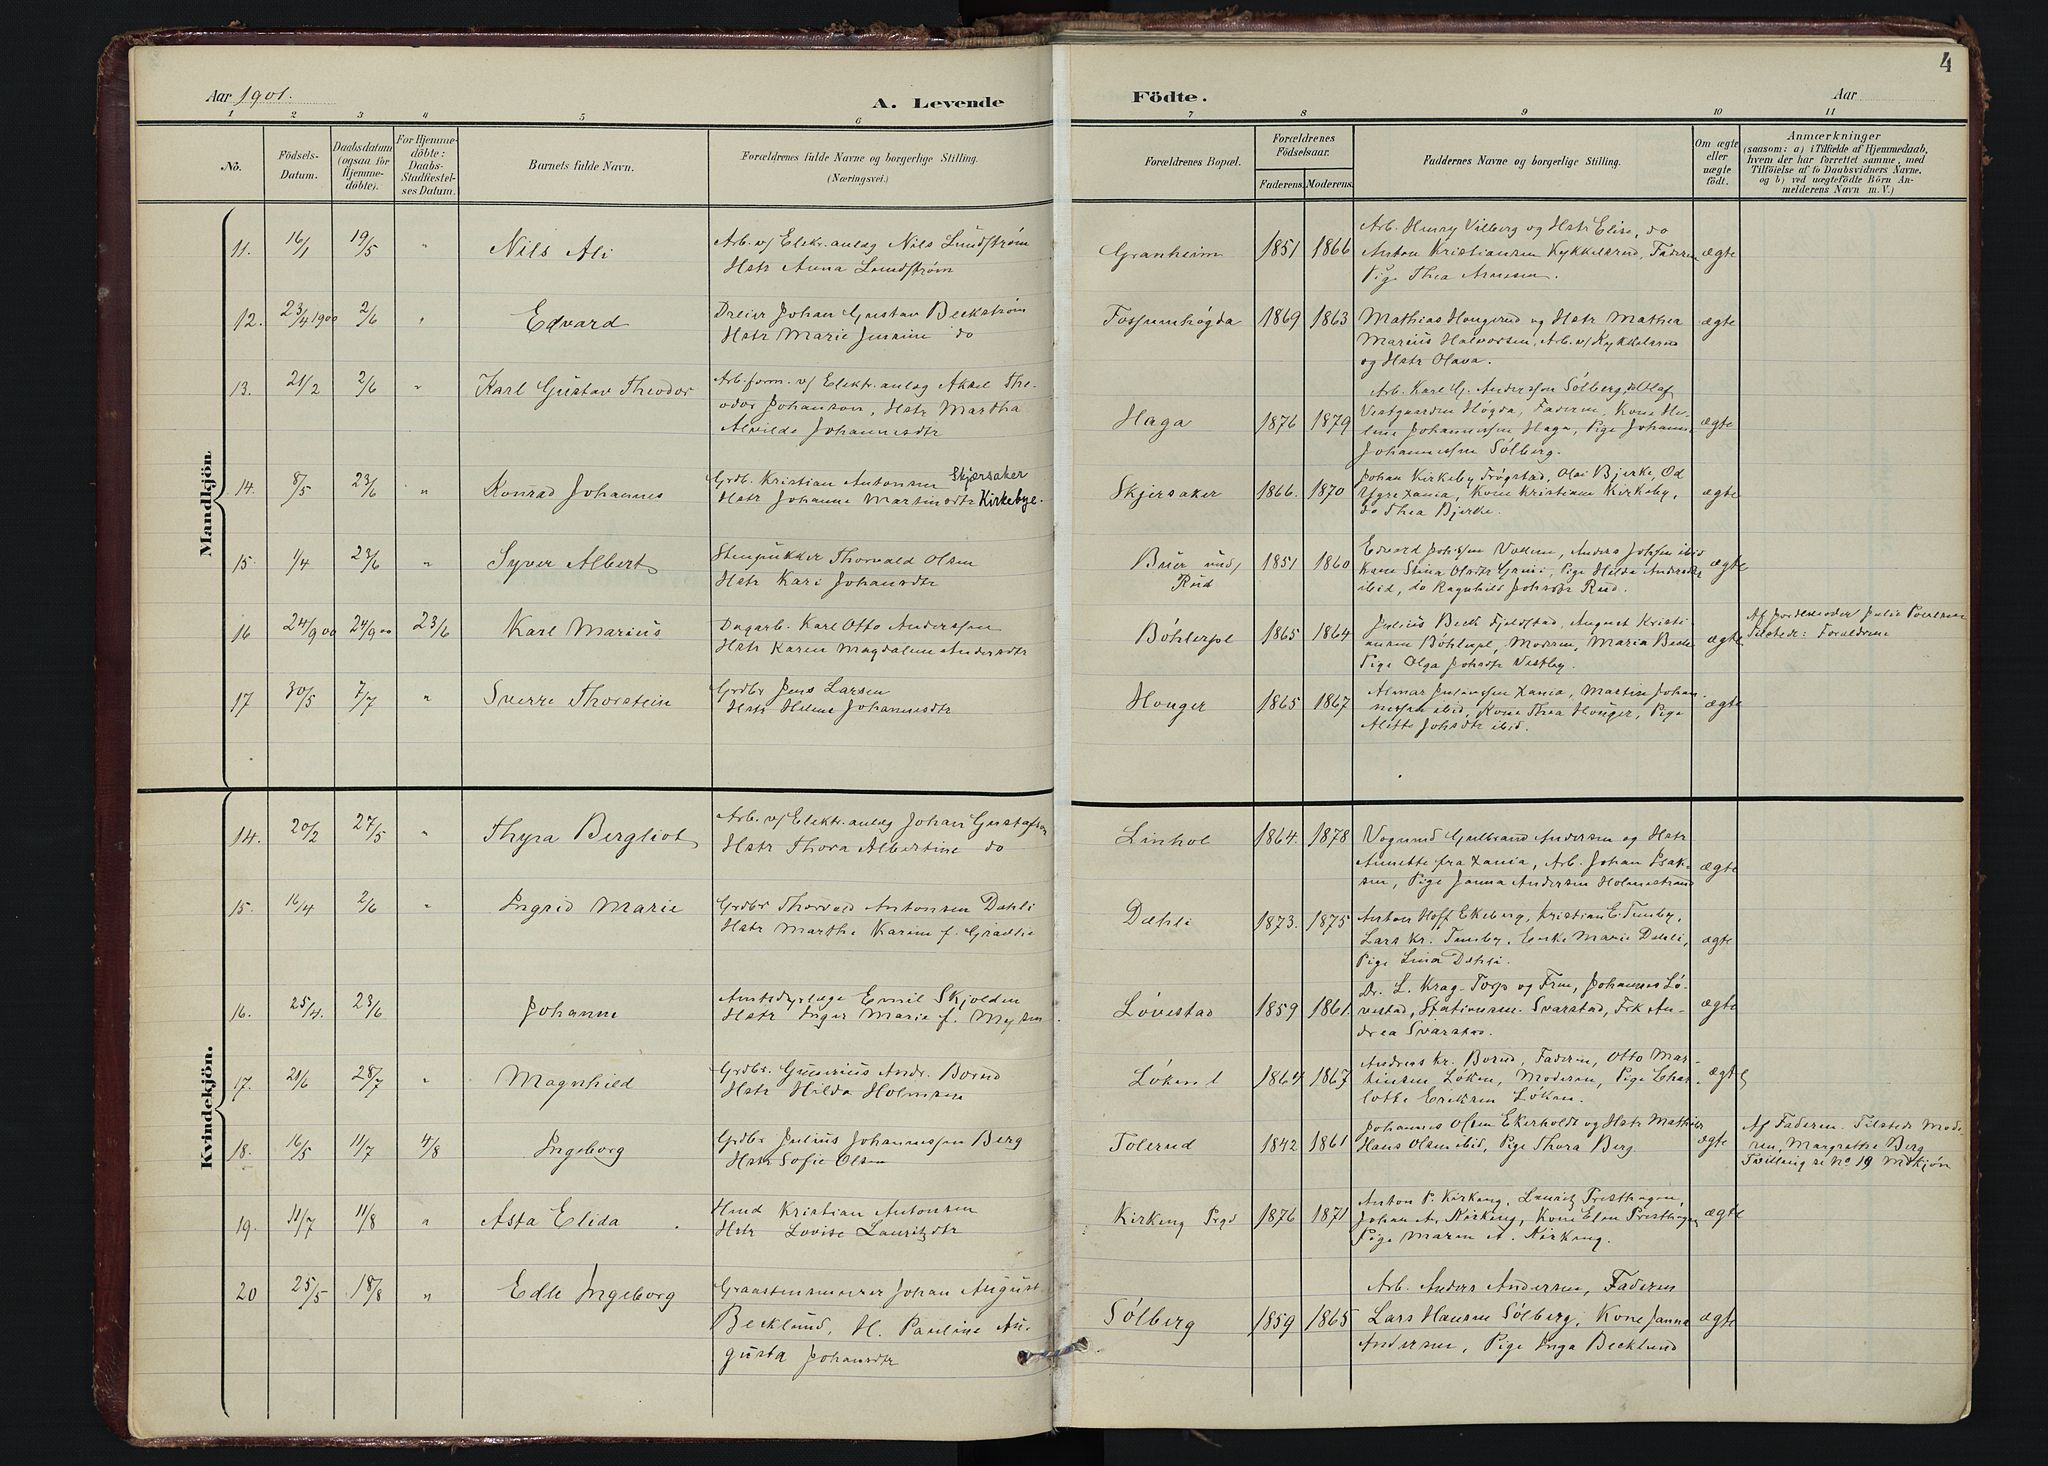 4
Aar 1901.
A. Levende Födte.
Aar
1 2 3 4 5 6 7 8 9 10 11
No.
Födsels-Datum.
Daabsdatum (ogsaa for Hjemme-döbte).
For Hjemme-döbte: Daabs-Stadfæstel-ses Datum.
Barnets fulde Navn.
Forældrenes fulde Navne og borgerlige Stilling. (Næringsvei.)
Forældrenes Bopæl.
Forældrenes Födselsaar.
Faderens. Moderens.
Faddernes Navne og borgerlige Stilling.
Om ægte eller uægte födt.
Anmærkninger
(saasom: a) i Tilfælde af Hjemmedaab, hvem der har forrettet samme, med Tilföielse af to Daabsvidners Navne, og b) ved uægtefödte Börn An-melderens Navn m. V.)
Mandkjön
11. 16/1 19/5 " Nils Ali
Arb. v/ Elektr. anlæg Nils Lundstrøm
Hstr Anna Lundstrøm
Granheim 1851 1866
Arb. Henry Vilberg og Hstr Elise, do
Anton Kristiansen Kykkelsrud, Faderen
Pige Thea Arnesen.
ægte
12. 23/4 1900 2/6 " Edvard
Dreier Johan Gustav Beckstrøm
Hstr Marie Jensine do
Fossumhøgda 1869 1863
Mathias Hougerud og Hstr Mathea
Marius Halvorsen, Arb. v/ Kykkelsrud
og Hstr Olava.
ægte
13. 21/2 2/6 " Karl Gustav Theodor
Arb. form. v/ Elektr. anlæg Aksel The-
odor Johanson, Hstr Martha
Alvilde Johannesdtr
Haga 1876 1879
Arb. Karl G. Anderssen Sølberg, Olaf
Vestgaarden Høgda, Faderen, Kone He-
line Johannessen Haga, Pige Johanne
Johannessen Sølberg.
ægte
14. 8/5 23/6 " Konrad Johannes
Grdb. Kristian Antonsen Skjærsaker
Hstr Johanne Martinsdtr Kirkebye.
Skjersaker 1866. 1870
Johan Kirkeby Trøgstad, Olai Bjerke
Kone Kristiane Kirkeby,
do Thea Bjerke.
ægte
15. 1/4 23/6 " Syver Albert
Stenpukker Thorvald Olsen
Hstr Kari Johansdtr
Buer und/
Rud
1851 1860
Edvard Johssen Anders Johssen ibid
Kone Stina Olsdtr Pige Hilda Andersdtr
ibid, do Ragnhild Johsdtr Rud.
ægte
16 24/9 00 24/9 00 23/6 Karl Marius
Dagarb. Karl Otto Anderssen
Hstr Karen Magdalene Andersdtr
Böhlerpl 1865 1864
Julius Beck Fjeldstad, August Kristi-
ansen Böhlerpl, Moderen, Maria Beck
Pige Olga Johsdtr Vestby.
ægte
Af Jordemoder Julie
Tilstede: Forældrene
17 30/5 7/7 " Sverre Thorstein
Grdbr Jens Larsen
Hstr Helene Johannesdtr
Houger 1865 1867
Almar Julinssen Xania, Martin Johan-
nessen ibid, Kone Thea Houger, Pige
Alette Johsdtr ibid.
ægte
Kvindekjön.
14. 20/2 27/5 " Thyra Bergliot
Arb. v/ Elektr. anlæg Johan Gustafson
Hstr Thora Albertine do
Linhol 1864. 1878
Vognmd Gulbrand Andersen og Hstr
Annette fra Xania, Arb. Johan Isak-
sen, Pige Janna Andersen Holmestrand
ægte
15. 16/4 2/6 " Ingrid Marie
Grdbr Thorvald Antonsen Dæhli
Hstr Marthe Karine f.
Dæhli 1873. 1875
Anton Hoff Ekeberg, Kristian E. Tensby,
Lars Kr. Tensby, Enke Marie Dæhli,
Pige Lina Dæhli.
ægte
16. 25/4. 23/6 Johanne
Amtsdyrlæge Emil Skjolden
Hstr Inger Marie f. Mysen
Løvestad 1859 1861.
Dr. L. Krag-Torp og Frue, Johannes Lø-
vestad, Stationsm. Svarstad, Frk An-
drea Svarstad.
ægte
17. 21/6 28/7 " Magnhild
Grdbr. Gunerius Andr. Bornd
Hstr Hilda Holmsen
Løken 1864 1867
Andreas Kr. Bornd, Faderen, Otto Mar-
tinsen Løken, Moderen, Pige Char-
lotte Eriksen Løken.
ægte
18. 16/5 11/7 4/8 Ingeborg
Grdbr Julius Johannessen Berg
Hstr Sofie Olsen
Tolerud 1842 1861
Johannes Olsen Ekerholdt og Hstr Mathilde
Hans Olsen ibid, Pige Thora Berg.
ægte
Af Faderen. Tilstede Mode-
ren, Margrethe Berg
Tvilling se No 19 Mdkjön
19. 11/7 11/8 " Asta Elida
Hmd Kristian Antonsen
Hstr Lovise Lauritzdtr
Kirkeng Prgd 1876 1871
Anton P. Kirkeng, Lauritz Presthagen,
Johan A. Kirkeng, Kone Elen Presthagen
Pige Maren A. Kirkeng.
ægte
20 25/5 18/8 " Edle Ingeborg
Graastensmurer Johan August
Becklund, H. Pauline Au-
gusta Johansdtr
Sølberg 1859 1865
Arb. Anders Andersen, Faderen
Lars Hansen Sølberg, Kone Janna
Andersen, Pige Inga Becklund
ægte